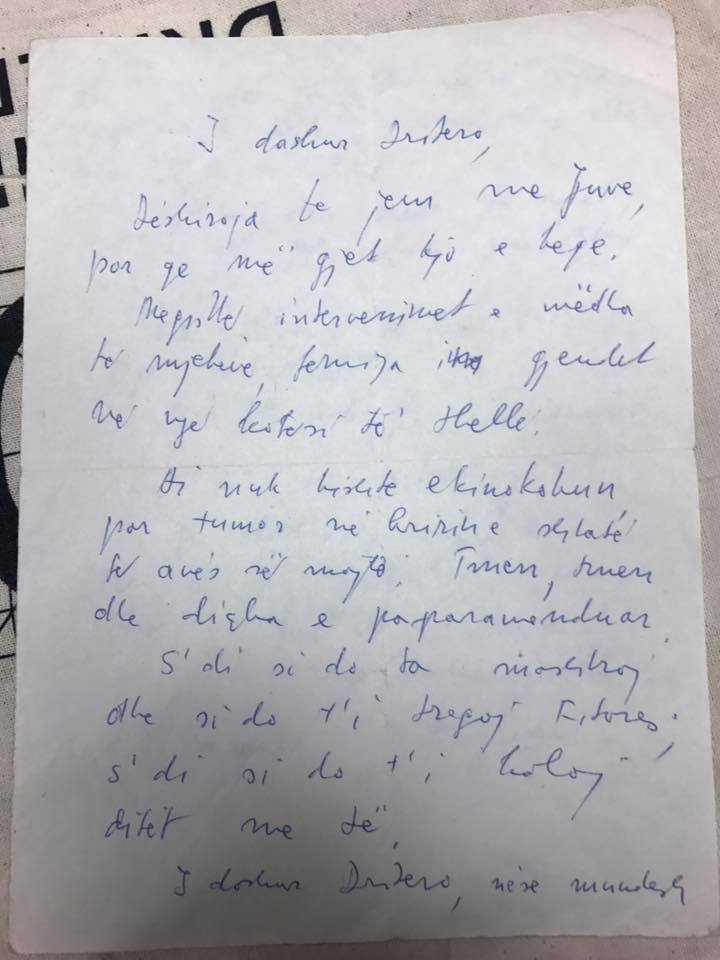 I dashur Dritero,
Dëshiroja te jem me Juve,
por qe më gjet kjo e keqe.
Megjithë intervenimet e mëdha
të mjekëve, fëmija gjendet
në një kotësi të thellë.
Ai nuk kishte ekinokokun
por tumor në
të anës së majtë. Tmerr, tmerr
dhe diçka e paparamenduar.
S'di si do ta mashtroj
dhe si do t'i tregoj Fitores;
s'di si do t'i kaloj
ditët me të.
I dashur Dritero, nëse mundesh